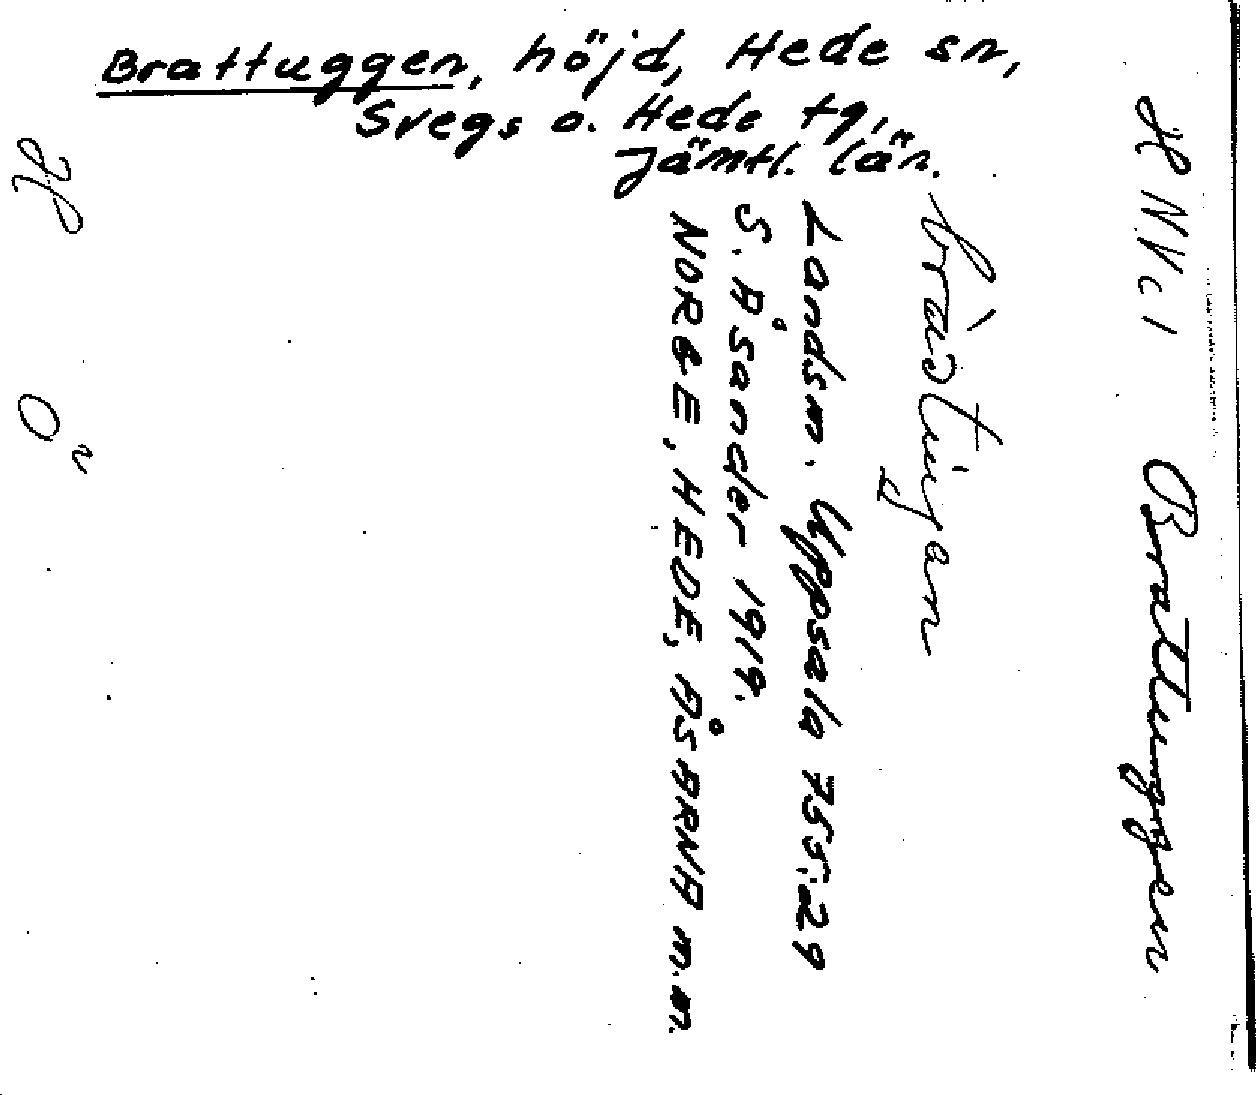 Brattuggen, höjd, Hede sn,
Svegs o. Hede tg,
Jämtl. län.
H NV. 1 Brattuggen
Landsm. Uppsala 755:29
S. Åsander 1919.
NORGE, HEDE, ÅSARNA m.m.
H Ö